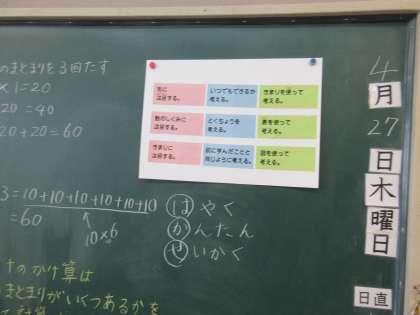 のまとまりを3回たす
×1=20
20=40
20+20=60
形に
注目する。
いつでもできるか
考える。
きまりを使って
考える。
数のしくみに
注目する。
とくちょうを
考える。
表を使って
考える。
きまりに
注目する。
前に学んだことと
同じように考える。
図を使って
考える。
3=10+10+10+10+10+10
=60
10×6
はやく
かんたん
せいかく
のかけ算は
まとまりがいくつあるかを
4
月
27
日
木
曜
日
日直